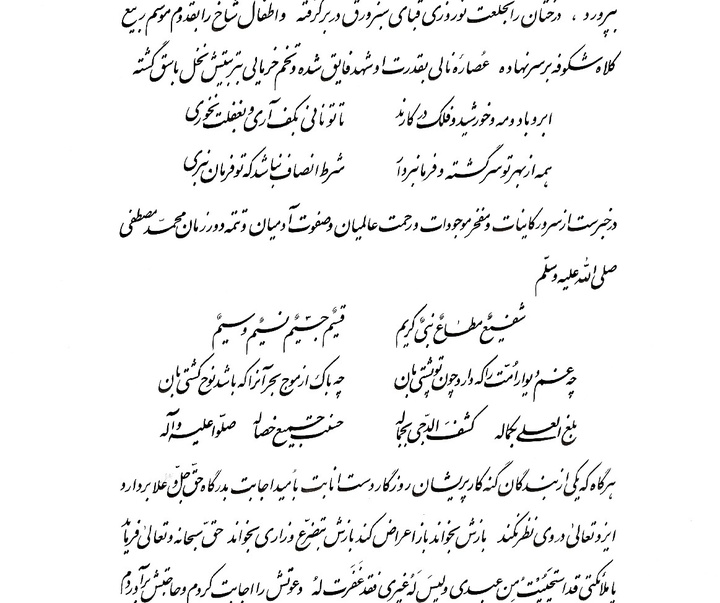 بپرورد ، درختان را بخلعت نوروزی قبای سبز ورق در بر گرفته و اطفال شاخ را بقدوم موسم ربیع
کلاه شکوفه بر سر نهاده عصارهٔ نالی بقدرت او شهد فایق شده و تخم خرمایی بتربیتش نخل باسق گشته
ابر و باد و مه و خورشید و فلک در کارند تا تو نانی بکف آری و بغفلت نخوری
همه از بهر تو سرگشته و فرمانبردار شرط انصاف نباشد که تو فرمان نبری
در خبرست از سرور کاینات و مفخر موجودات و رحمت عالمیان و صفوت آدمیان و تتمه دور زمان محمد مصطفی
صلی الله علیه وسلّم
شفیعٌ مطاعٌ نبیٌ کریم قسیمٌ جسیمٌ نسیمٌ وسیمٌ
چه غم دیوار امّت را که دارد چون تو پشتی بان چه باک از موج بحر آنرا که باشد نوح کشتی بان
بلغ العلی بکماله کشف الدّجی بجماله حسنت جمیع خصاله صلّوا علیه و آله
هرگاه که یکی از بندگان گنه کار پریشان روزگار دست انابت بامید اجابت بدرگاه حقّ جلّ و علا بردارد
ایزد تعالی در وی نظر نکند بازش بخواند باز اعراض کند بازش بتضرّع و زاری بخواند حقّ سبحانه و تعالی فرماید
یا ملائکتی قد استحییت من عبدی و لیس له غیری فقد غفرت له دعوتش را اجابت کردم و حاجتش برآوردم